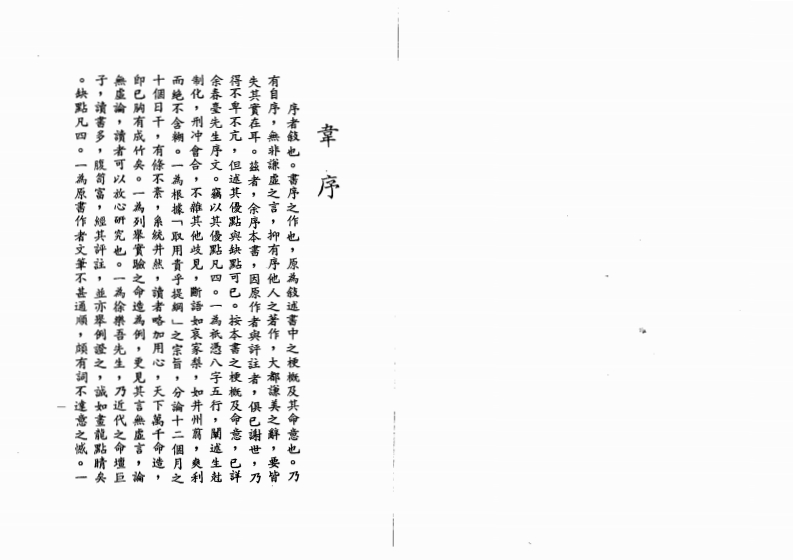 韋序
序者敍也。書序之作也，原為敍述書中之梗概及其命意也。乃
有自序，無非謙虛之言，抑有序他人之著作，大都謙美之辭，要皆
失其實在耳。茲者，余序本書，因原作者與評註者，俱已謝世，乃
得不卑不亢，但述其優點與缺點可已。按本書之梗概及命意，已詳
余春臺先生序文。竊以其優點凡四。一為祇憑八字五行，闡述生尅
制化，刑冲會合，不雜其他歧見，斷語如哀家梨，如并州翦，爽利
而絕不含糊。一為根據「取用貴乎提綱」之宗旨，分論十二個月之
十個日干，有條不紊，系統井然，讀者略加用心，天下萬千命造，
即已胸有成竹矣。一為列舉實驗之命造為例，更見其言無虛言，論
無虛論，讀者可以放心研究也。一為徐樂吾先生，乃近代之命壇巨
子，讀書多，腹笥富，經其評註，並亦舉例證之，誠如畫龍點睛矣
。缺點凡四。一為原書作者文筆不甚通順，頗有詞不達意之憾。一
一